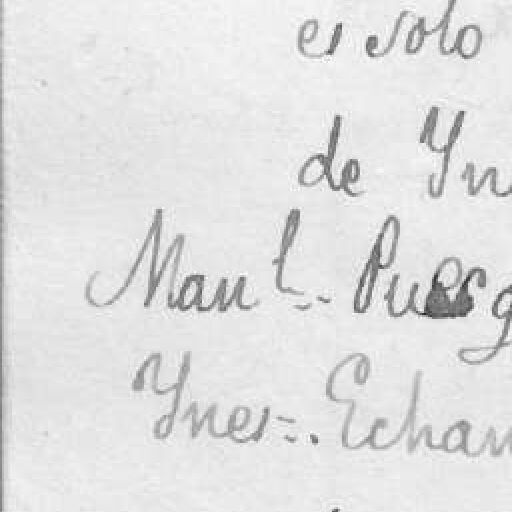 es solo
de Yn
Man l.. Puesg
Ynes-. Echan